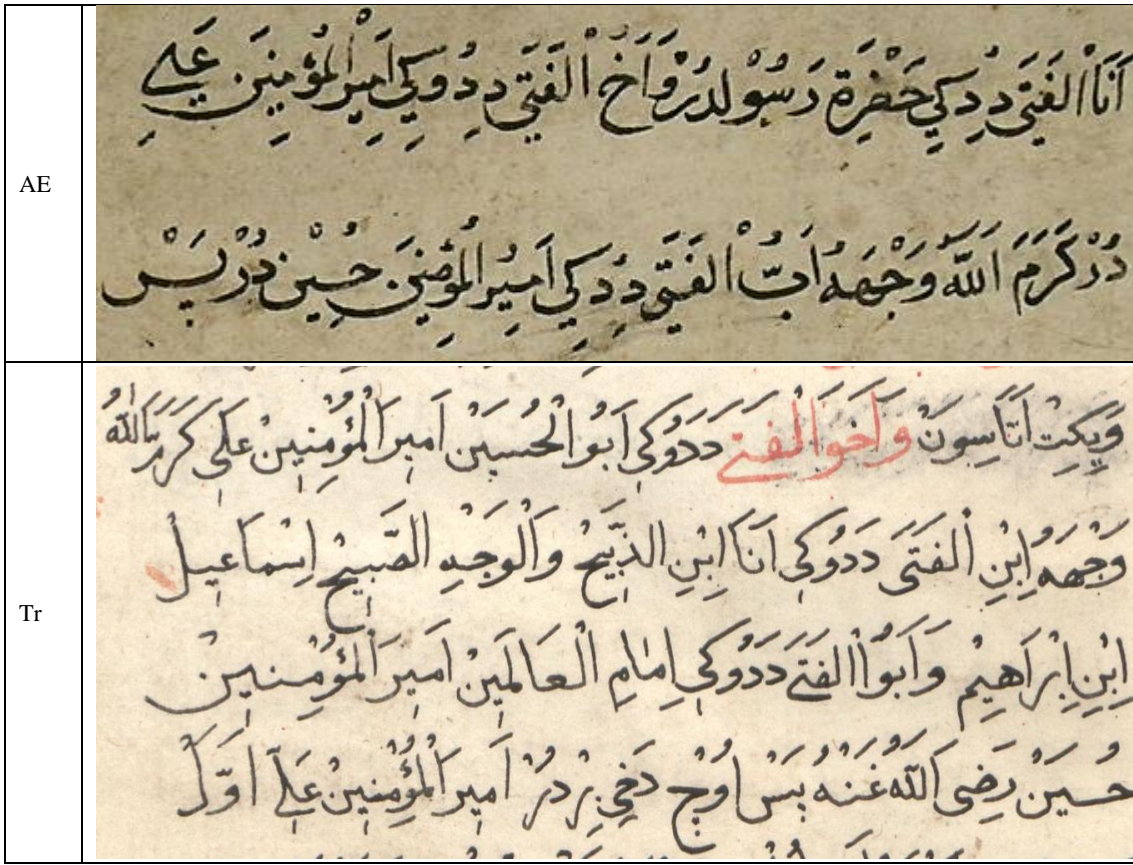 AE
اَنَاْ الفَتَى دِدِكِي حَضْرَة رَسُولدُرْ وَاَخُ اْلفَتَى دِدُوكِي اَمِيرُ اْلمُؤمِنِينَ عَلِي
دُرْ كَرَّمَ اَللّٰهُ وَجْهَهُ اَبُ اْلفَتَى دِدِكِي اَمِيُر المُؤمِنِينَ حُسِيْن دُرْ پَسْ
Tr
وَيِكِتْ اَتَاسِونْ وَاَخوُ الْفتى دَدَدُوكِي اَبُو الْحُسَيْن اَمِيرَ الْمُؤْمِنِينْ عَلَى كَرَّمَ اللّٰهُ
وَجْهَهُ اِبْنِ اْلفَتَى دَدُوكِي اَنَا اِبْنِ الذَّبِيحْ وَالْوَجْهِ الصَّبِيحْ اِسْمَاعِيلْ
اِبْنِ اِبْرَاهِيْم وَاَبُواْ الفَتَى دَدَدُوكِي اِمَامِ الْعَالَمِيْنْ اَمِيرَ الْمُؤْمِنِينْ
حُسَيَنْ رَضِىَ اَللّٰهُ عَنْهُ بَسْ اوُچْ دَخِي بِرْدُرْ اَمِيرَ الْمُؤْمِنِينْ عَلِى اوَّلْ